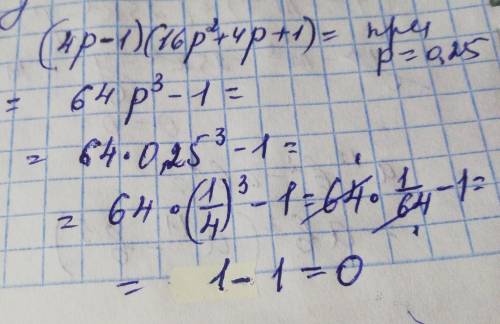 (4p-1)(16p²+4p+1)= при p=0,25
= 64p³-1=
= 64·0,25³-1=
= 64·(1/4)³-1=64·1/64-1=
= 1-1=0